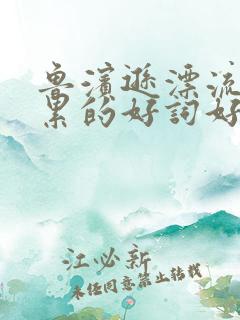 鲁滨逊漂流
累的好词好
江必新
未经同意禁止转载